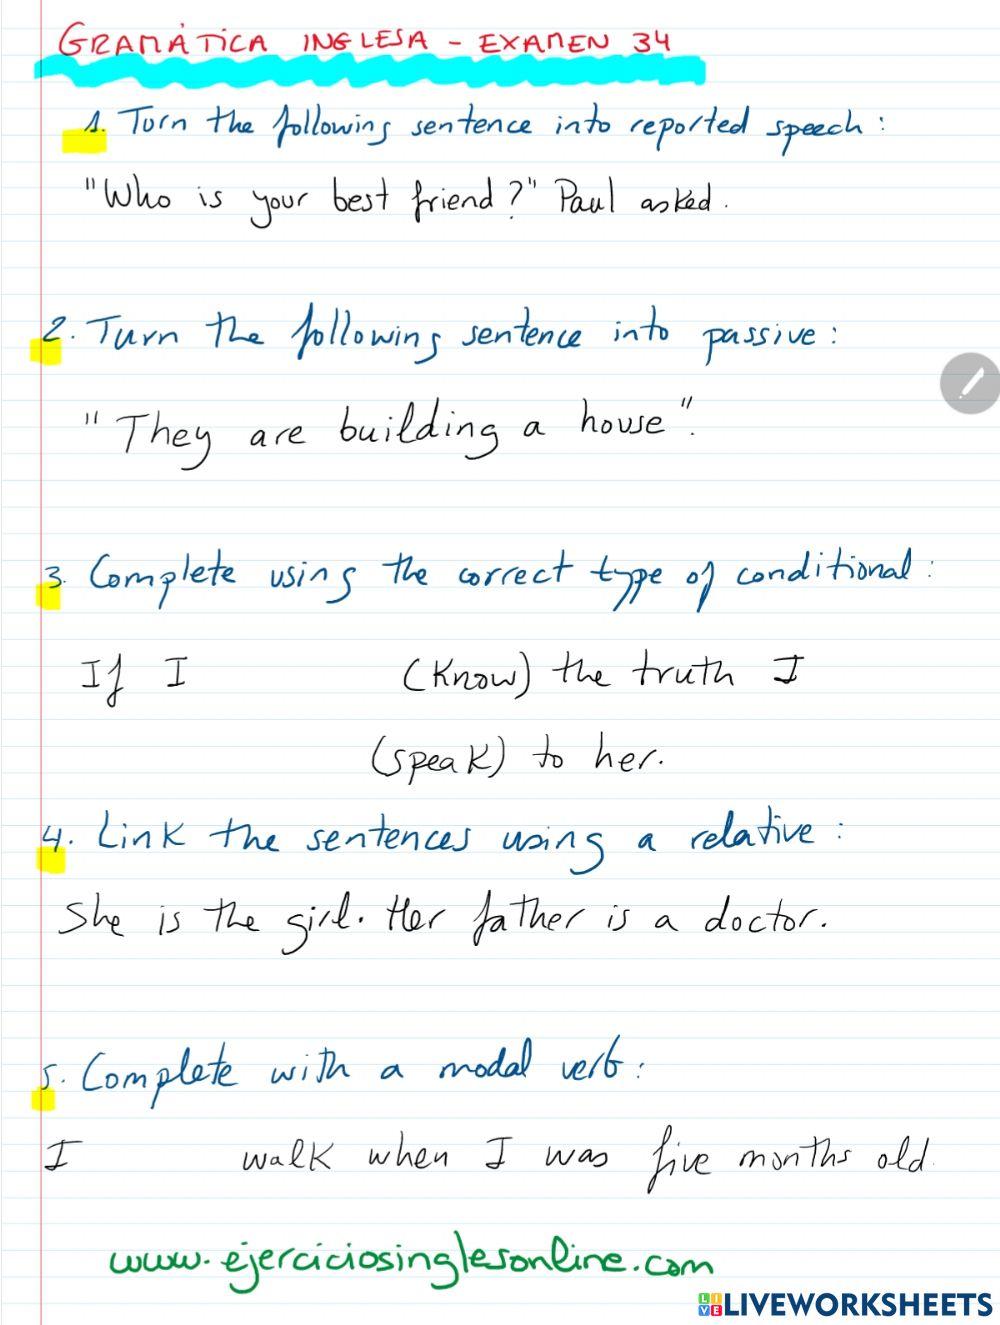 GRAMÁTICA INGLESA - EXAMEN 34
1. Turn the following sentence into reported speech:
"Who is your best friend?" Paul asked.
2. Turn the following sentence into passive:
"They are building a house".
3. Complete using the correct type of conditional:
If I (know) the truth I
(speak) to her.
4. Link the sentences using a relative:
She is the girl. Her father is a doctor.
5. Complete with a modal verb:
I walk when I was five months old.
www.ejerciciosinglesonline.com
LIVEWORKSHEETS